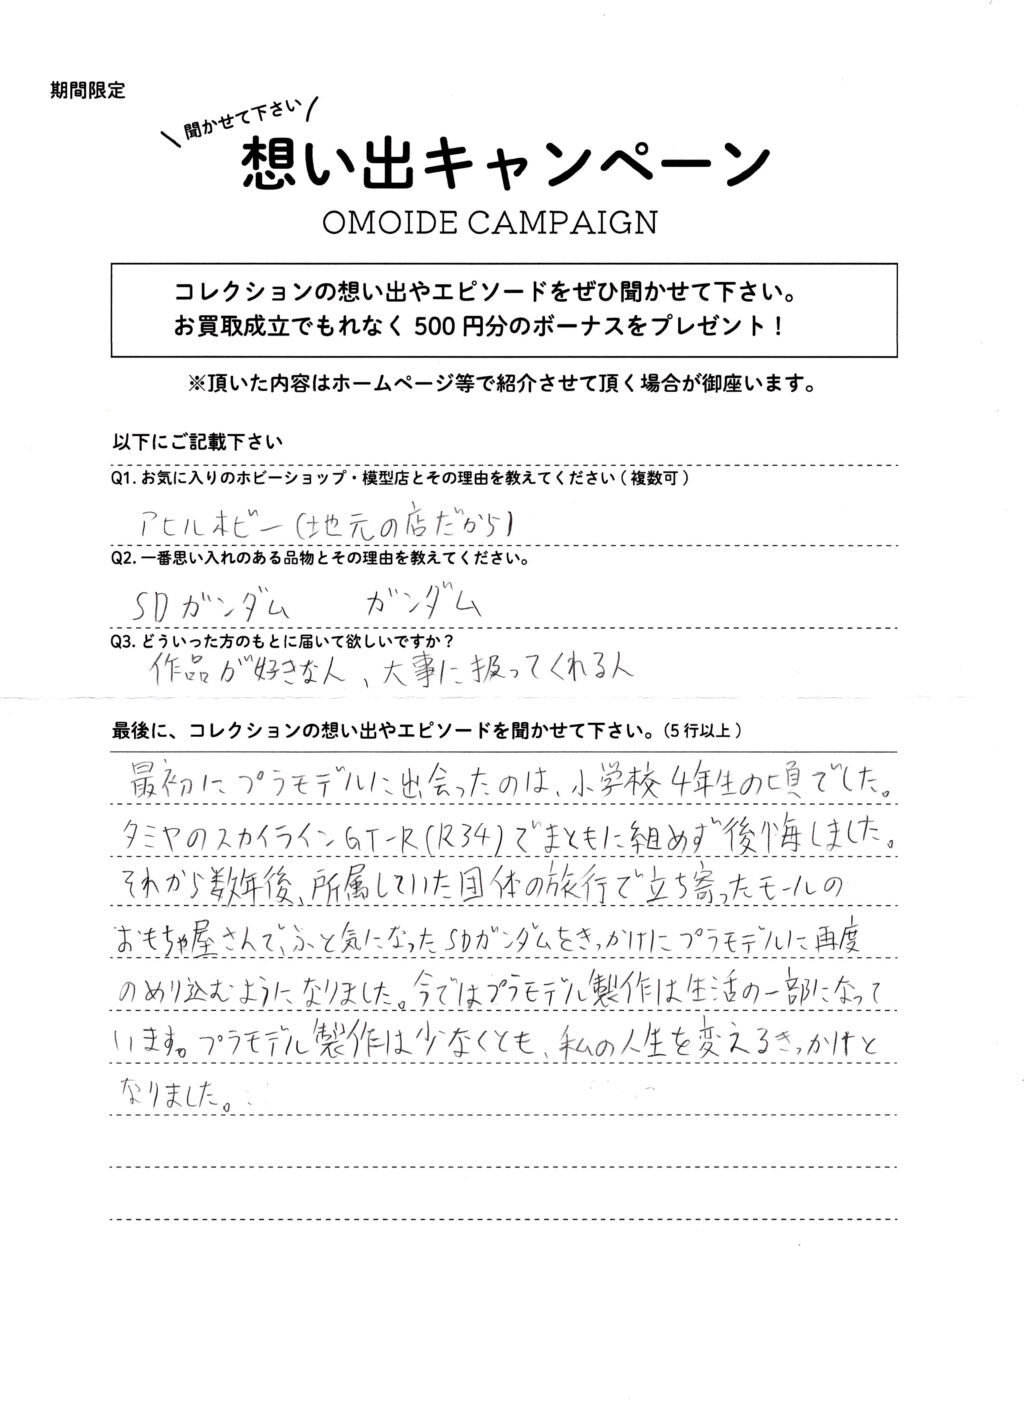 期間限定
聞かせて下さい
想い出キャンペーン
OMOIDE CAMPAIGN
コレクションの想い出やエピソードをぜひ聞かせて下さい。
お買取成立でもれなく 500 円分のボーナスをプレゼント！
※頂いた内容はホームページ等で紹介させて頂く場合が御座います。
以下にご記載下さい
Q1. お気に入りのホビーショップ・模型店とその理由を教えてください ( 複数可 )
アヒルホビー(地元の店だから)
Q2. 一番思い入れのある品物とその理由を教えてください。
SDガンダム ガンダム
Q3. どういった方のもとに届いて欲しいですか？
作品が好きな人、大事に扱ってくれる人
最後に、コレクションの想い出やエピソードを聞かせて下さい。(5 行以上 )
最初にプラモデルに出会ったのは、小学校4年生の頃でした。
タミヤのスカイラインGT-R(R34)でまともに組めず後悔しました。
それから数年後、所属していた団体の旅行で立ち寄ったモールの
おもちゃ屋さんで、ふと気になったSDガンダムをきっかけにプラモデルに再度
のめり込むようになりました。今ではプラモデル製作は生活の一部になって
います。プラモデル製作は少なくとも、私の人生を変えるきっかけと
なりました。